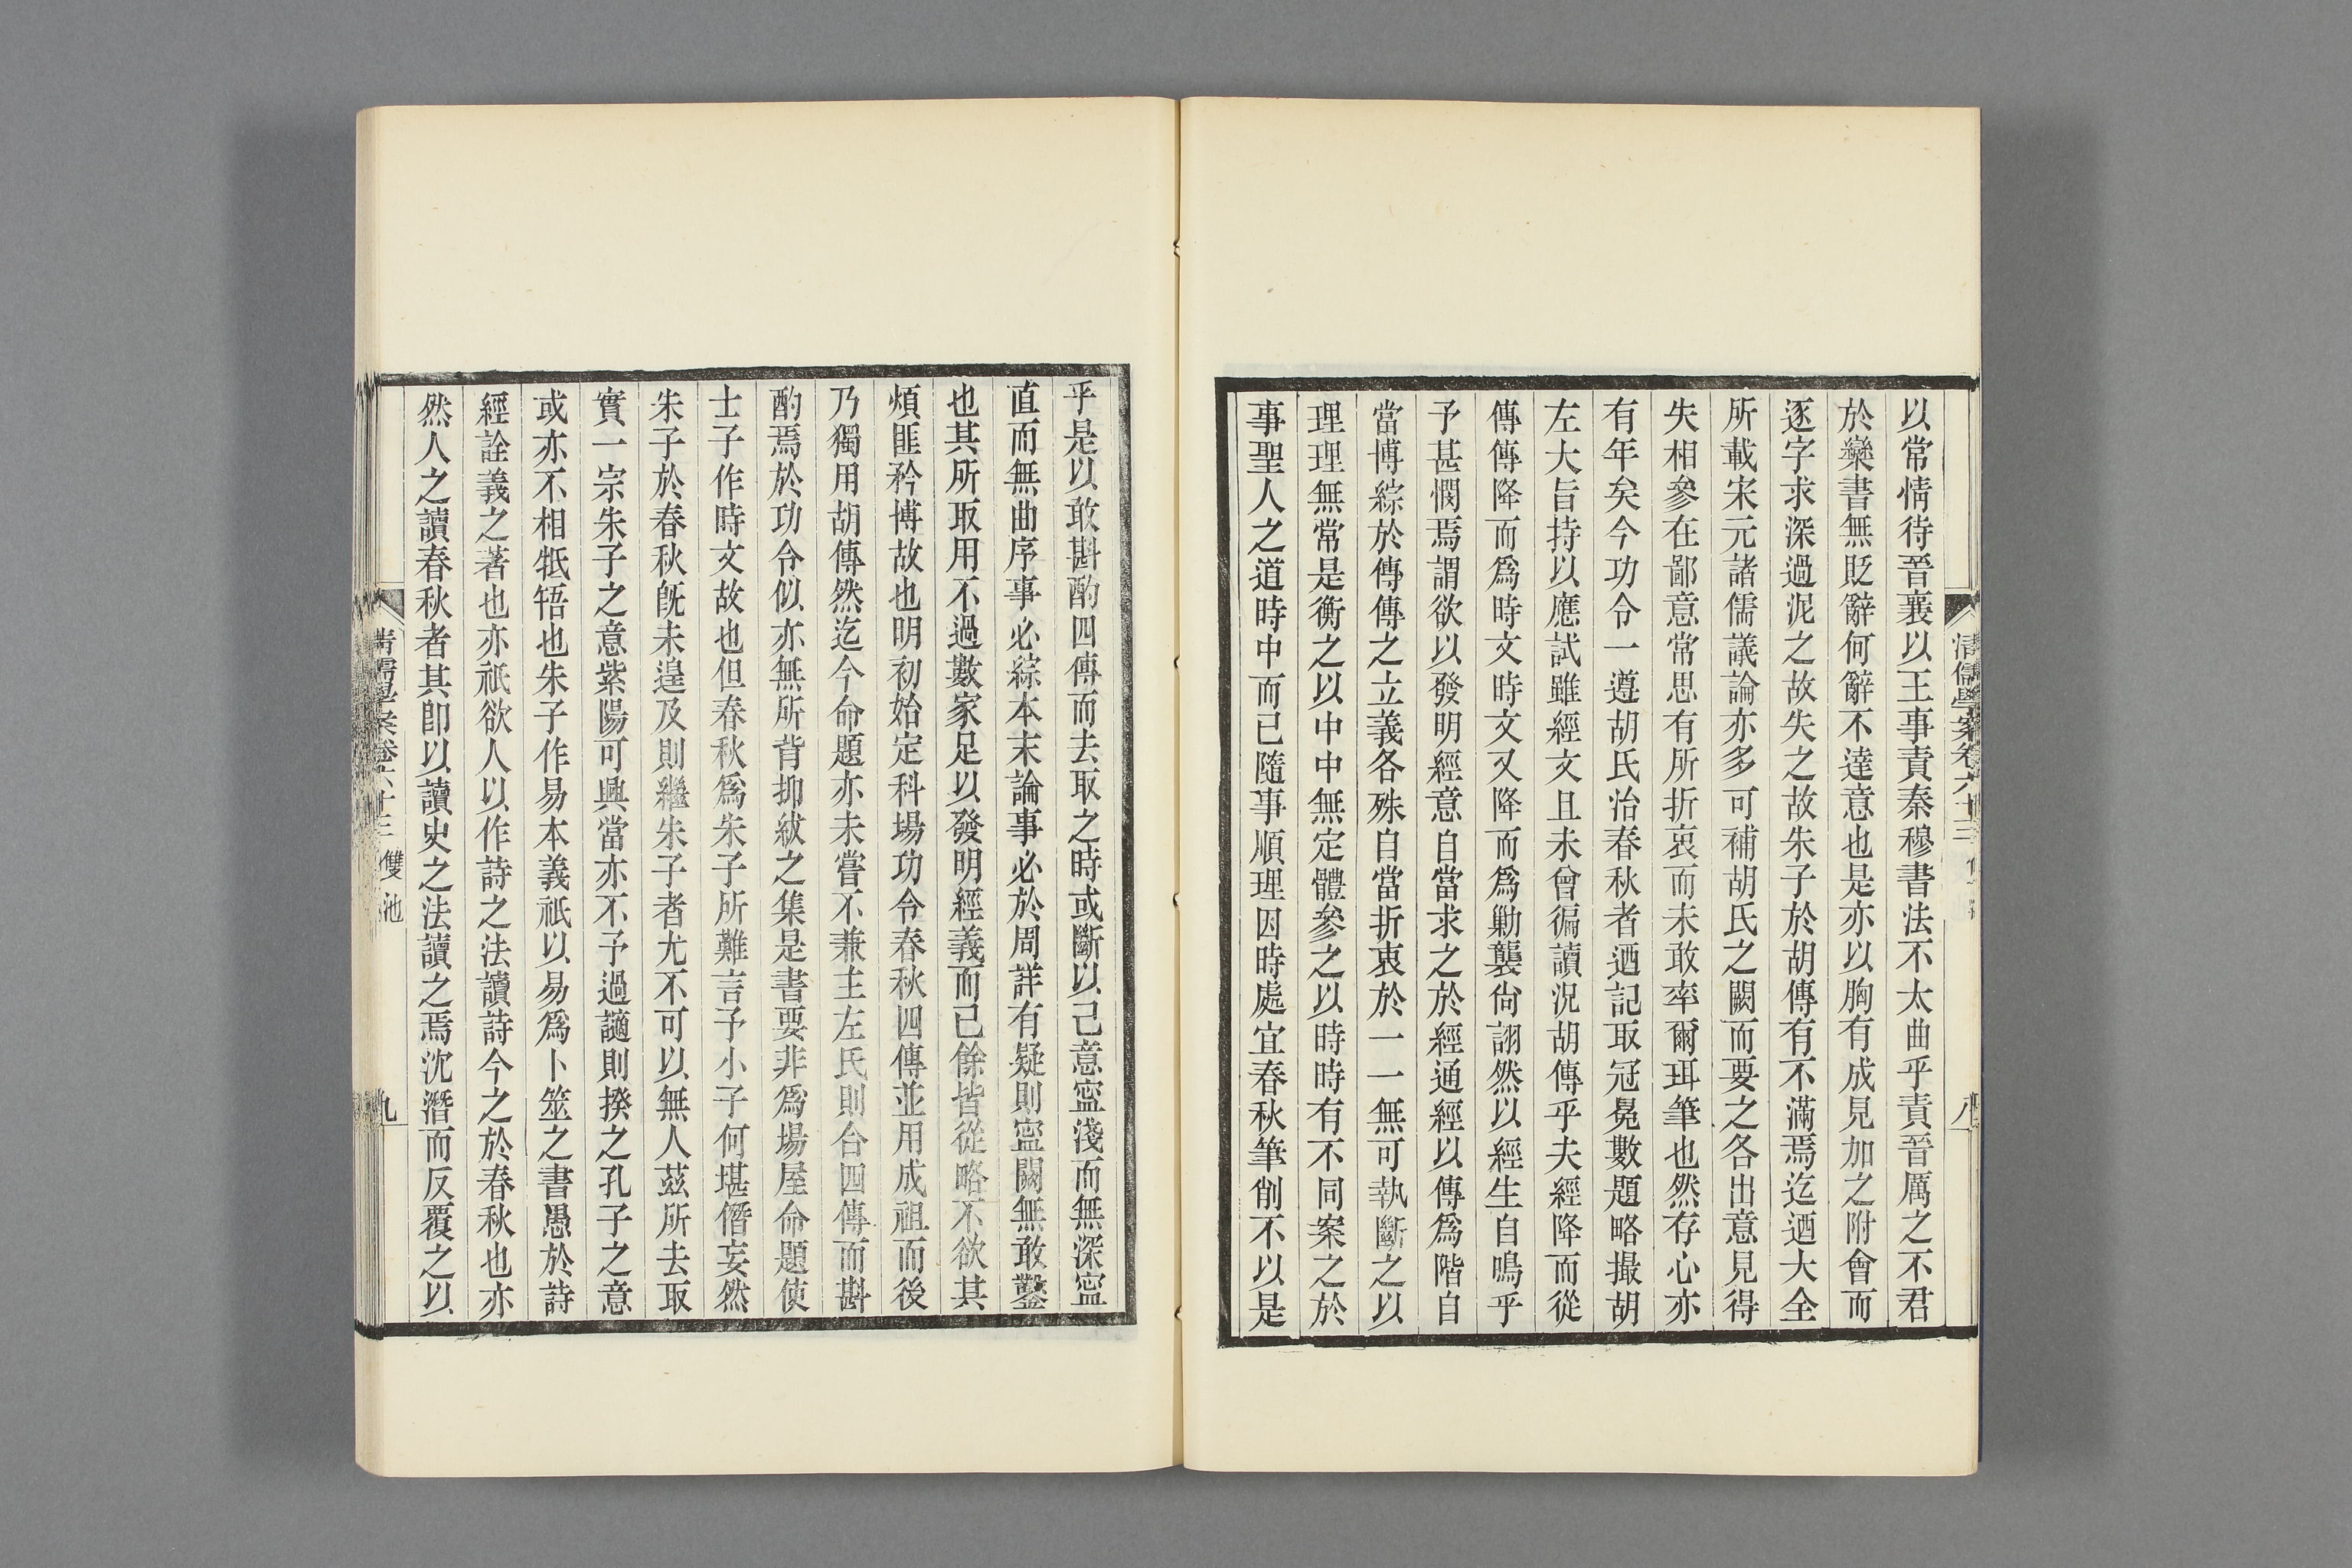 清儒學案卷六十三
八
以常情待晉襄以王事責秦穆書法不太曲乎責晉厲之不君
於欒書無貶辭何辭不達意也是亦以胸有成見加之附會而
逐字求深過泥之故失之故朱子於胡傳有不滿焉迄迺大全
所載宋元諸儒議論亦多可補胡氏之闕而要之各出意見得
失相參在鄙意常思有所折衷而未敢率爾珥筆也然存心亦
有年矣今功令一遵胡氏治春秋者迺記取冠冕數題略撮胡
左大旨持以應試雖經文且未曾徧讀況胡傳乎夫經降而從
傳傳降而爲時文時文又降而爲勦襲尙詡然以經生自鳴乎
予甚憫焉謂欲以發明經意自當求之於經通經以傳爲階自
當博綜於傳傳之立義各殊自當折衷於一一無可執斷之以
理理無常是衡之以中中無定體參之以時時有不同案之於
事聖人之道時中而已隨事順理因時處宜春秋筆削不以是
乎是以敢斟酌四傳而去取之時或斷以己意寍淺而無深寍
直而無曲序事必綜本末論事必於周詳有疑則寍闕無敢鑿
也其所取用不過數家足以發明經義而已餘皆從略不欲其
煩匪矜博故也明初始定科場功令春秋四傳並用成祖而後
乃獨用胡傳然迄今命題亦未嘗不兼主左氏則合四傳而斟
酌焉於功令似亦無所背抑紱之集是書要非爲場屋命題使
士子作時文故也但春秋爲朱子所難言予小子何堪僭妄然
朱子於春秋旣未遑及則繼朱子者尤不可以無人茲所去取
實一宗朱子之意紫陽可興當亦不予過讁則揆之孔子之意
或亦不相牴牾也朱子作易本義祇以易爲卜筮之書愚於詩
經詮義之著也亦祇欲人以作詩之法讀詩今之於春秋也亦
然人之讀春秋者其卽以讀史之法讀之焉沈潛而反覆之以
清儒學案卷六十三 雙池
九